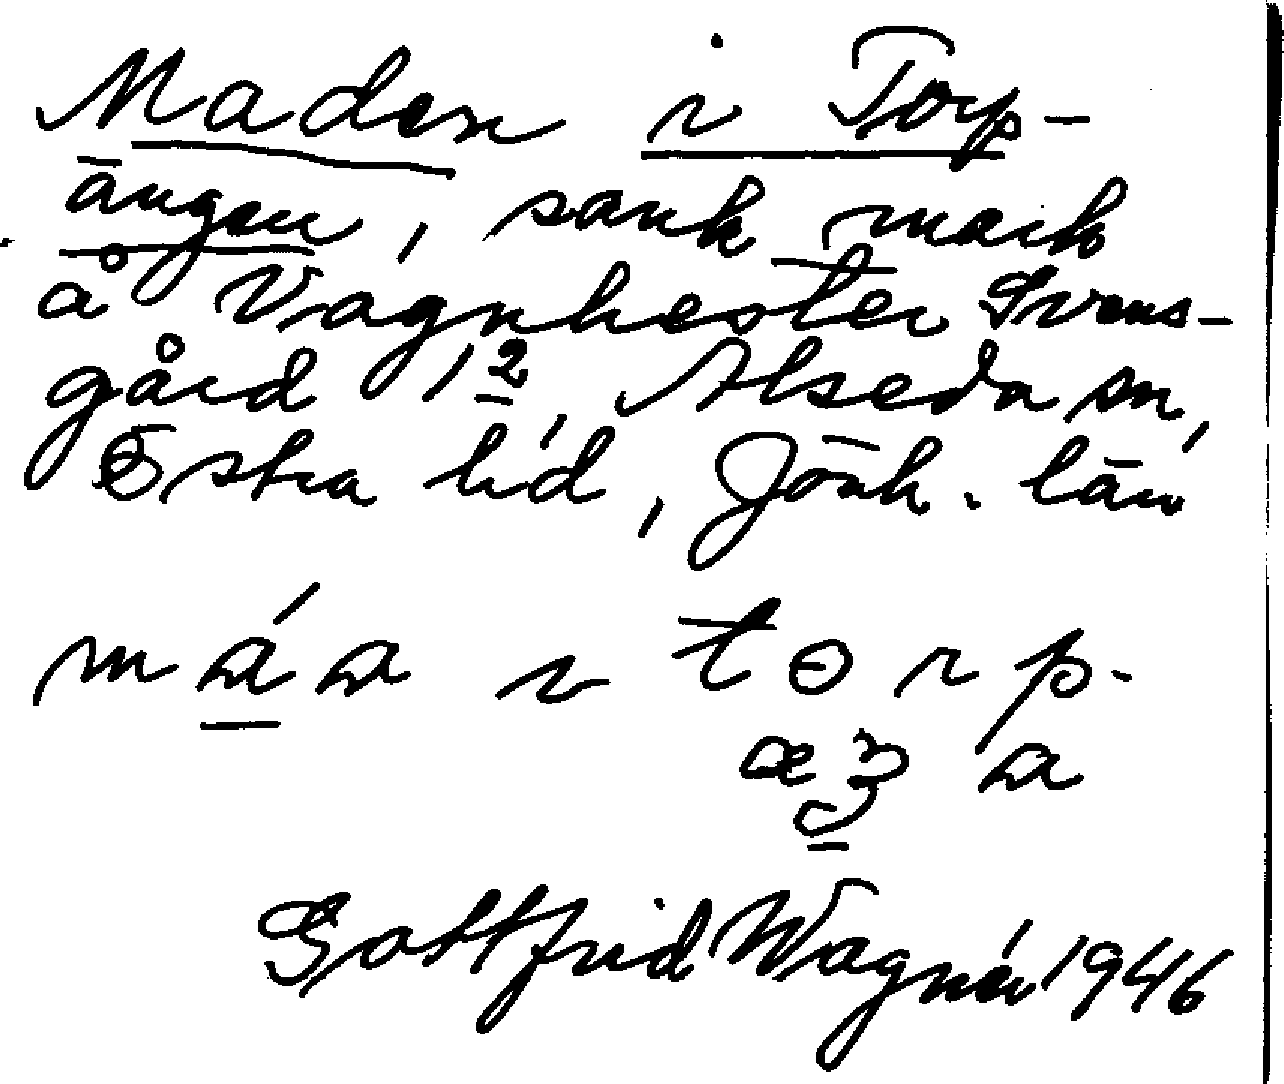 Maden i Torp-
ängen, sank mark
å Vagnhester Svens-
gård 1², Alseda sn,
Östra hd, Jönk. län
máa i torp-
æŋa
Gottfrid Wagnér 1946